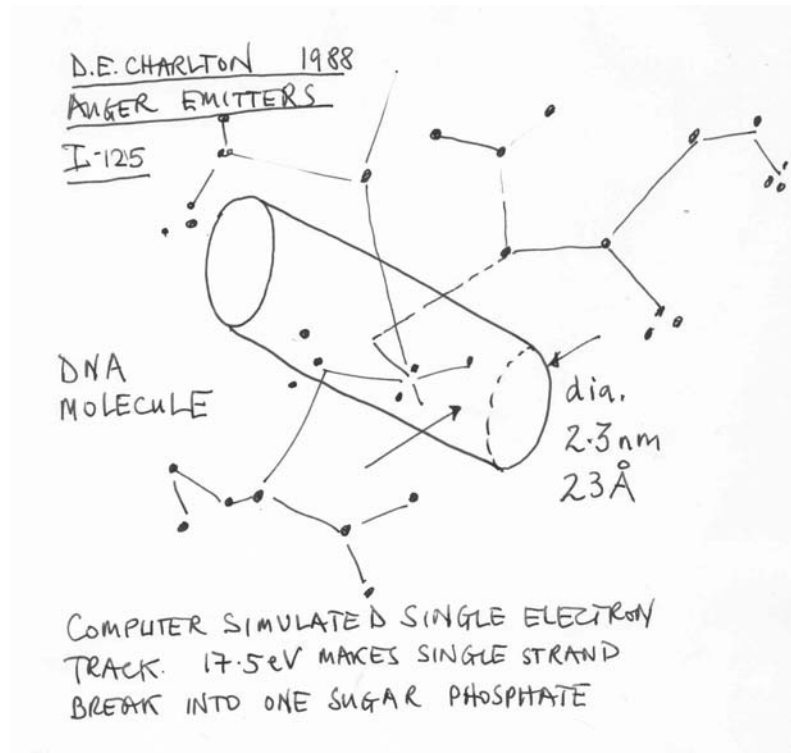 D.E. CHARLTON 1988
AUGER EMITTERS
I-125
DNA
MOLECULE
dia.
2.3nm
23Å
COMPUTER SIMULATED SINGLE ELECTRON
TRACK. 17.5eV MAKES SINGLE STRAND
BREAK INTO ONE SUGAR PHOSPHATE